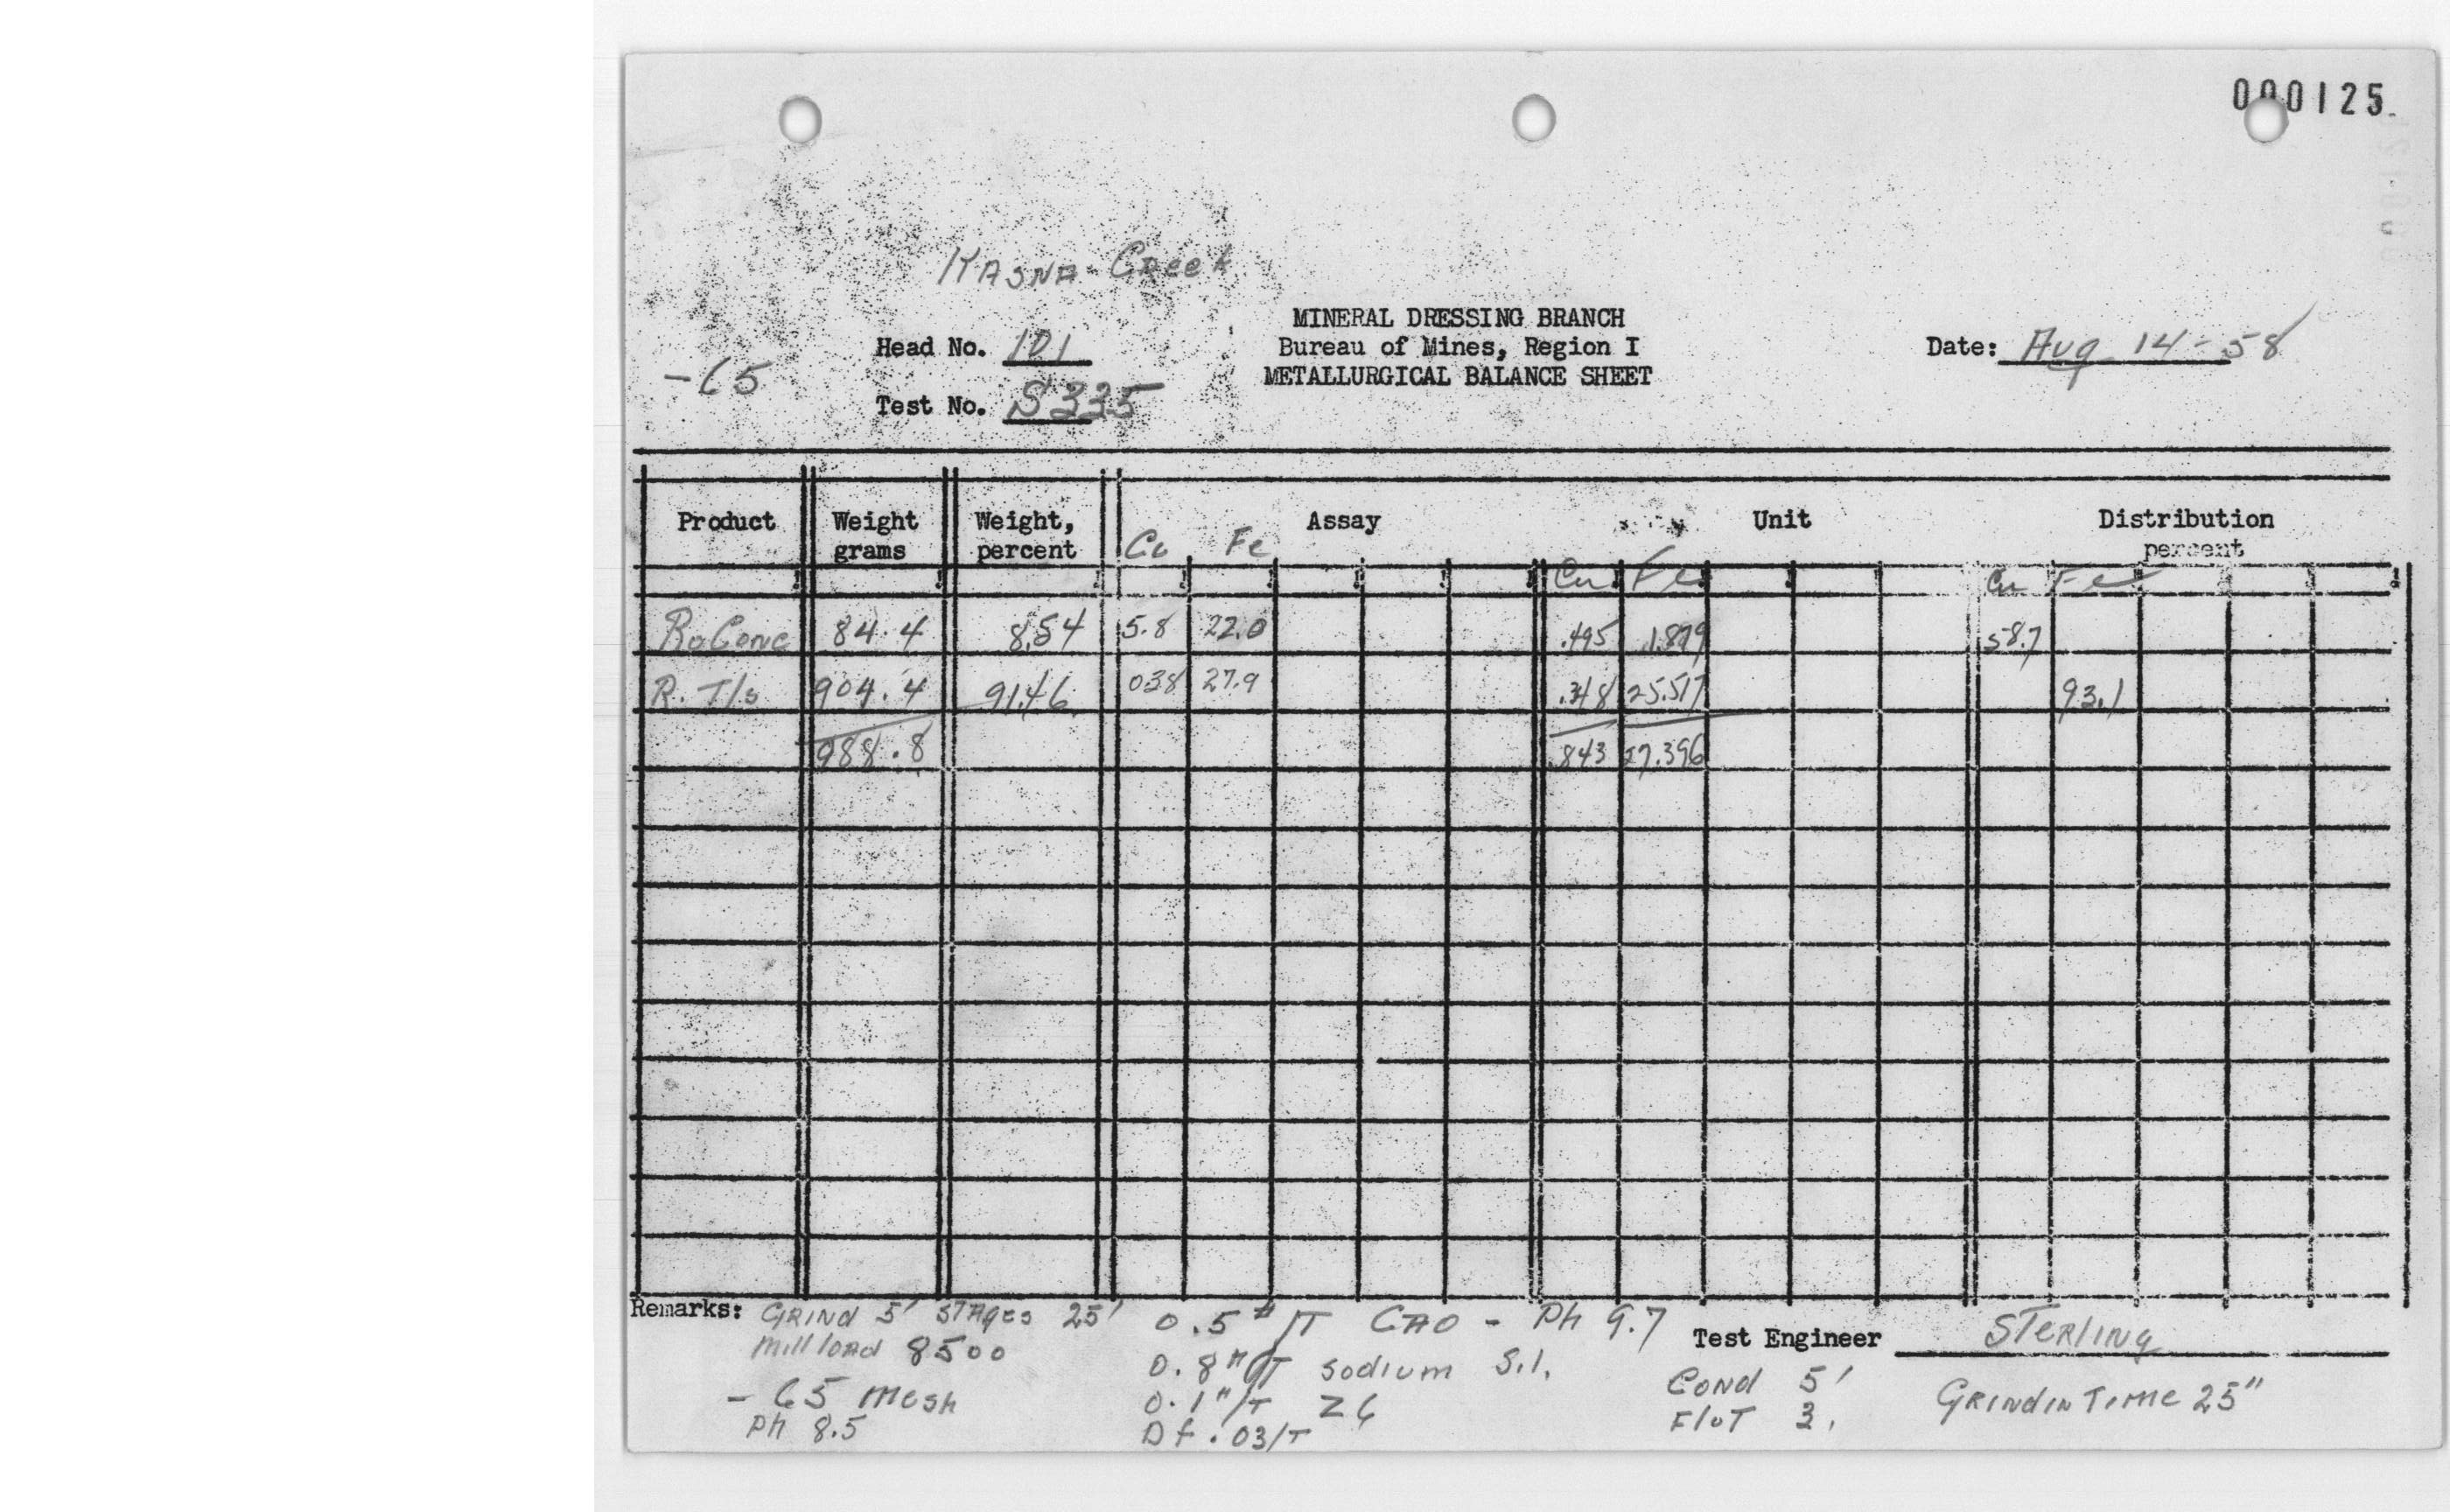 000125
Kasna Creek
MINERAL DRESSING BRANCH
Head No. 101
Bureau of Mines, Region I
Date: Aug 14-58
-65
METALLURGICAL BALANCE SHEET
Test No. S335
Product Weight grams Weight, percent Assay Unit Distribution percent
Cu Fe Cu Fe Cu Fe
Ro Conc 84.4 8.54 5.8 22.0 .495 1.879 58.7
R. Tls 904.4 91.46 038 27.9 .348 25.517 93.1
988.8 .843 27.396
Remarks: Grind 5' Stages 25' 0.5 #/T CAO - Ph 9.7
Test Engineer Sterling
mill load 8500
0.8 "/T Sodium S.i.
- 65 mesh
0.1 "/T Z6
Cond 5'
Grindin Time 25"
Ph 8.5
Df .03/T
Flot 3'